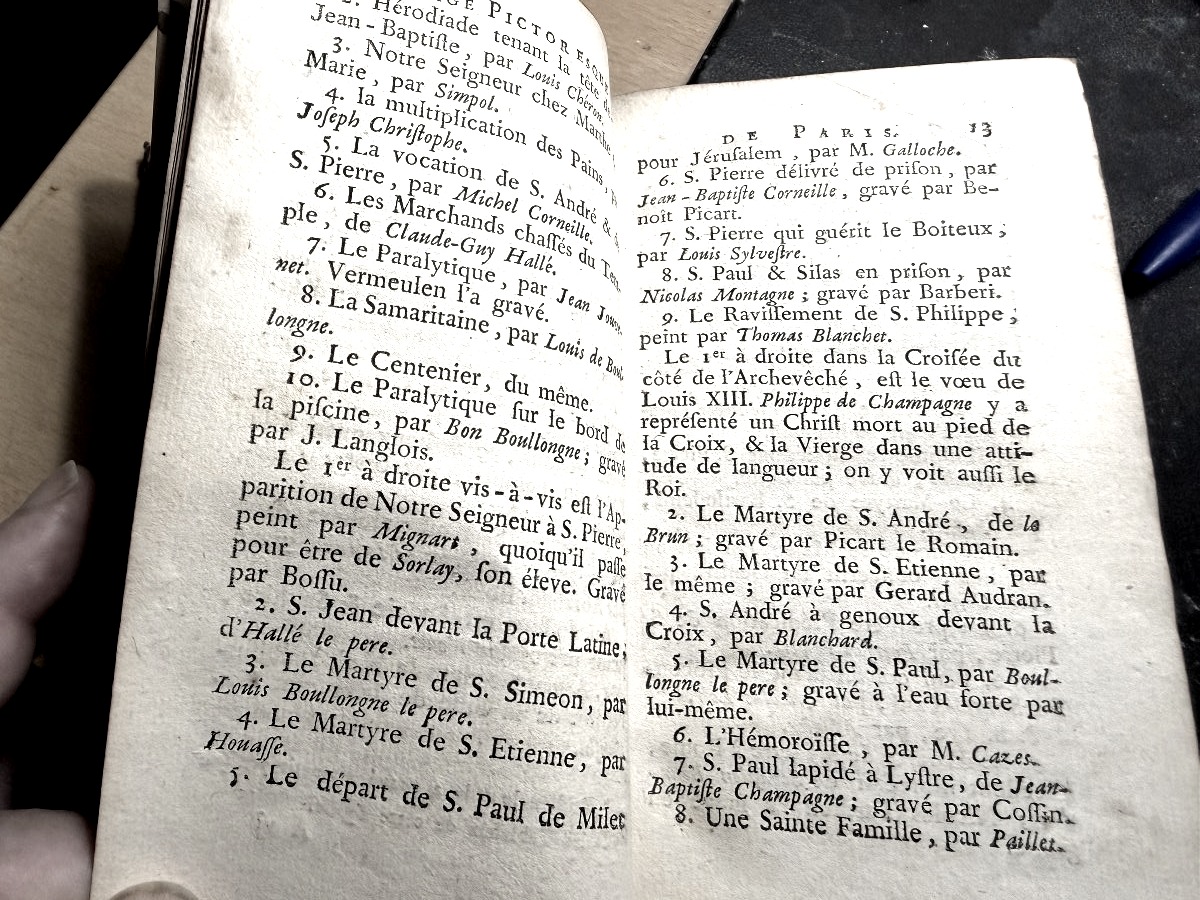 GE PICTORESQUE
2. Hérodiade tenant la tête de
Jean-Baptiſte, par Louis Chéron.
3. Notre Seigneur chez Marthe
Marie, par Simpol.
4. la multiplication des Pains,
Joſeph Chriſtophe.
5. La vocation de S. André &
S. Pierre, par Michel Corneille.
6. Les Marchands chaſſés du Tem-
ple, de Claude-Guy Hallé.
7. Le Paralytique, par Jean Jouve-
net. Vermeulen l'a gravé.
8. La Samaritaine, par Louis de Boul-
longne.
9. Le Centenier, du même.
10. Le Paralytique ſur le bord de
la piſcine, par Bon Boullongne; gravé
par J. Langlois.
Le 1er à droite vis-à-vis eſt l'Ap-
parition de Notre Seigneur à S. Pierre,
peint par Mignart, quoiqu'il paſſe
pour être de Sorlay, ſon éleve. Gravé
par Boſſu.
2. S. Jean devant la Porte Latine;
d'Hallé le pere.
3. Le Martyre de S. Simeon, par
Louis Boullongne le pere.
4. Le Martyre de S. Etienne, par
Houaſſe.
5. Le départ de S. Paul de Milet
DE PARIS. 13
pour Jéruſalem, par M. Galloche.
6. S. Pierre délivré de priſon, par
Jean-Baptiſte Corneille, gravé par Be-
noît Picart.
7. S. Pierre qui guérit le Boiteux;
par Louis Sylveſtre.
8. S. Paul & Silas en priſon, par
Nicolas Montagne; gravé par Barberi.
9. Le Raviſſement de S. Philippe;
peint par Thomas Blanchet.
Le 1er à droite dans la Croiſée du
côté de l'Archevêché, eſt le vœu de
Louis XIII. Philippe de Champagne y a
repréſenté un Chriſt mort au pied de
la Croix, & la Vierge dans une atti-
tude de langueur; on y voit auſſi le
Roi.
2. Le Martyre de S. André, de le
Brun; gravé par Picart le Romain.
3. Le Martyre de S. Etienne, par
le même; gravé par Gerard Audran.
4. S. André à genoux devant la
Croix, par Blanchard.
5. Le Martyre de S. Paul, par Boul-
longne le pere; gravé à l'eau forte par
lui-même.
6. L'Hémoroïſſe, par M. Cazes.
7. S. Paul lapidé à Lyſtre, de Jean-
Baptiſte Champagne; gravé par Coſſin.
8. Une Sainte Famille, par Paillet.